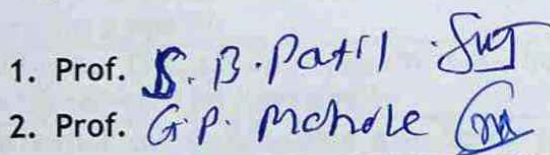 1. Prof. S. B. Patil
2. Prof. G. P. Mahole